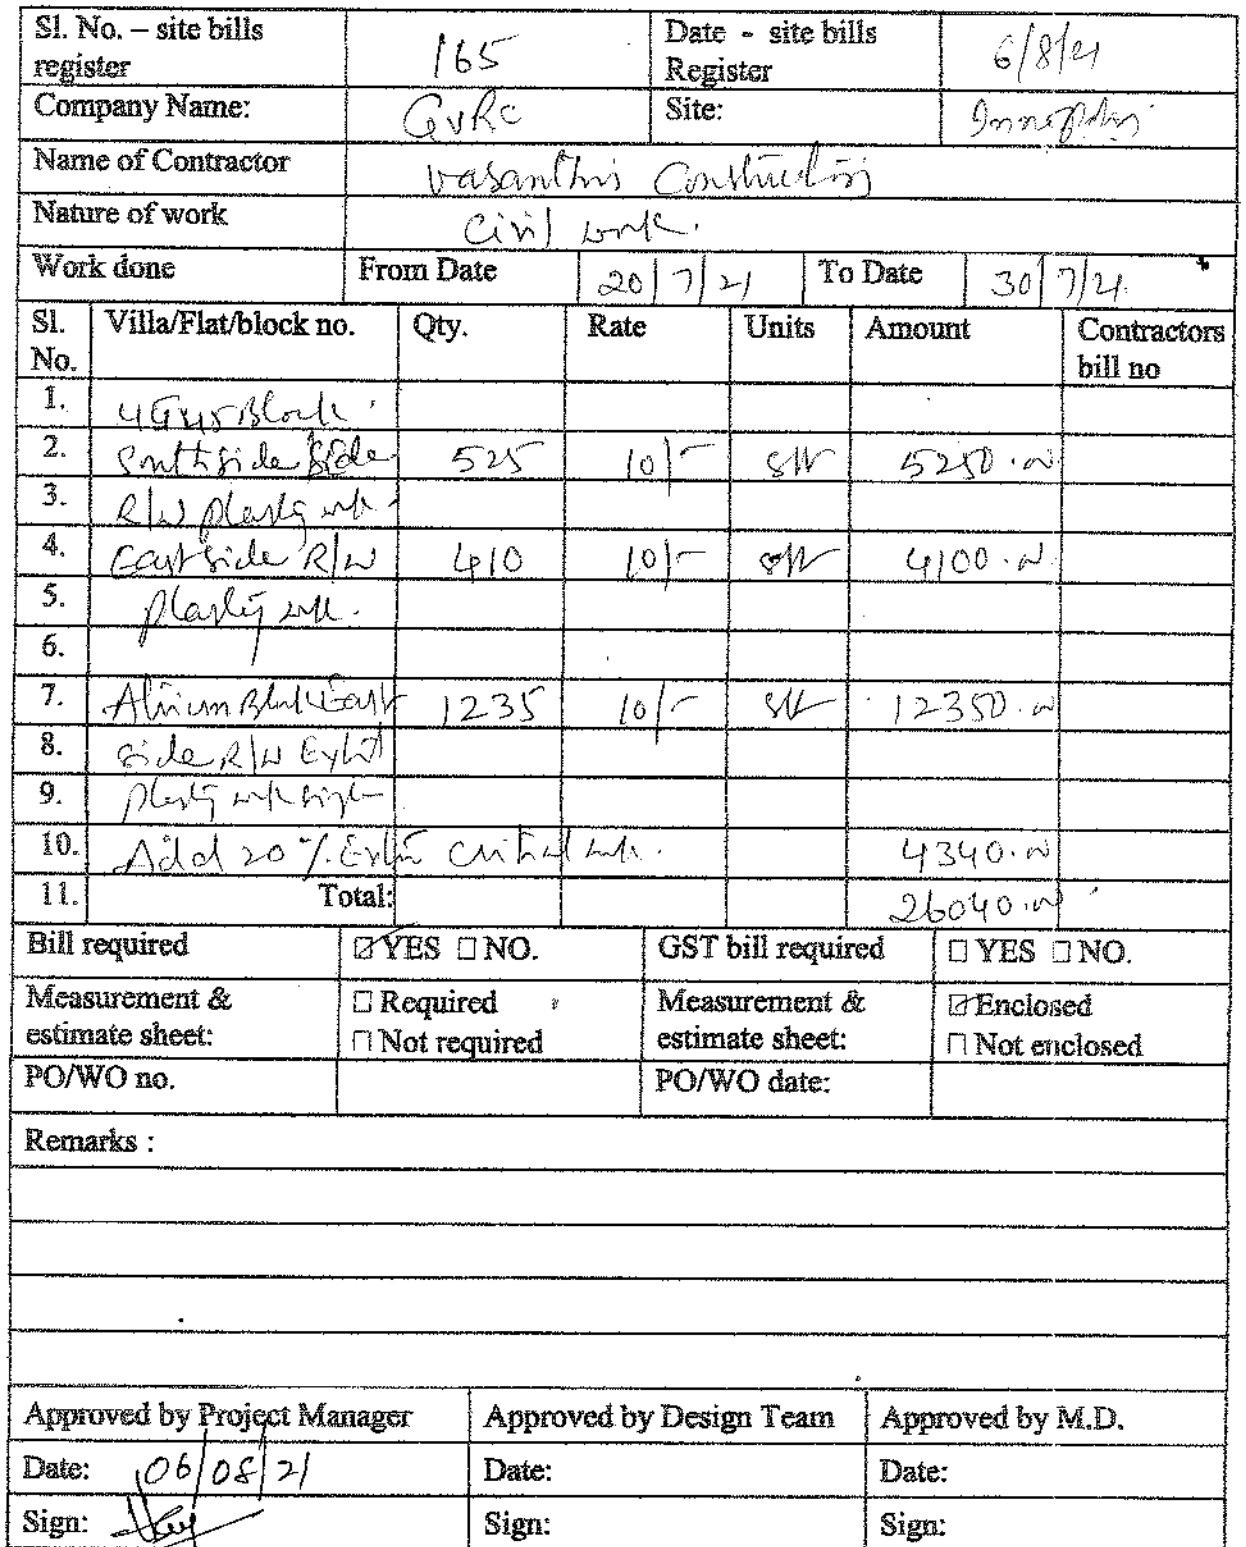 Sl. No. – site bills register 165 Date - site bills Register 6/8/21
Company Name: GVRC Site: Innopolis
Name of Contractor Vasanthis Constructions
Nature of work Civil work.
Work done From Date 20/7/21 To Date 30/7/21.
Sl. No. Villa/Flat/block no. Qty. Rate Units Amount Contractors bill no
1. Block.
2. Southside Side 525 10/- sft 5250.00
3. R/W plastg wk.
4. East side R/W 410 10/- sft 4100.00
5. plastg wk.
6.
7. Atrium Block East 1235 10/- sft 12350.00
8. side R/W
9. plastg wk
10. Add 20 % Extra critical wk. 4340.00
11. Total: 26040.00
Bill required ☑ YES ☐ NO. GST bill required ☐ YES ☐ NO.
Measurement & estimate sheet: ☐ Required ☐ Not required Measurement & estimate sheet: ☑ Enclosed ☐ Not enclosed
PO/WO no. PO/WO date:
Remarks :
Approved by Project Manager Approved by Design Team Approved by M.D.
Date: 06/08/21 Date: Date:
Sign: Sign: Sign: